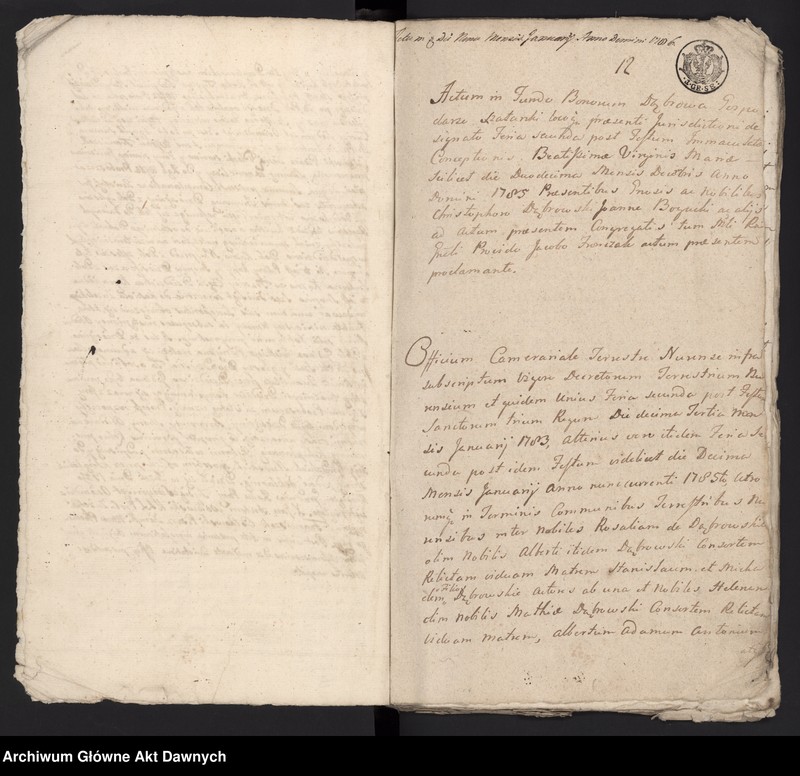 Die Nona Mensis Januarij Anno Domini 1786
12
4 GR. SR.
Actum in Fundo Bonorum Dąbrowa Gospo
darze Szatanki loco præsenti Jurisdictioni de
signato Feria secunda post Festum Immaculatæ
Conceptionis Beatissimæ Virginis Mariæ
scilicet die Duodecima Mensis Decembris Anno
Domini 1785 Præsentibus Gnosis ac Nobilibus
Christophoro Dąbrowski Joanne Bogucki ac alijs
ad Actum præsentem Congregatis tum
Jacobo actum præsentem
proclamante.
Officium Camerariale Terrestre Nurense infra
subscriptum vigore Decretorum Terrestrium Nu
rensium et quidem Unius Feria secunda post Festum
Sanctorum trium Regum Die decima Tertia Men
sis Januarij 1783, Alterius vero itidem Feria Se
cunda post idem Festum videlicet die Decima
Mensis Januarij Anno nunc currenti 1785to utro
rumq in Terminis Communibus Terrestribus Nu
rensibus inter Nobiles Rosaliam de Dąbrowskie
olim Nobilis Alberti itidem Dąbrowski Consortem
Relictam viduam Matrem Stanislaum et Micha
elem Filios Dąbrowskie Actores ab una et Nobiles Helenam
olim Nobilis Mathiæ Dąbrowski Consortem Relictam
viduam matrem, Albertum Adamum Antonium
Archiwum Główne Akt Dawnych